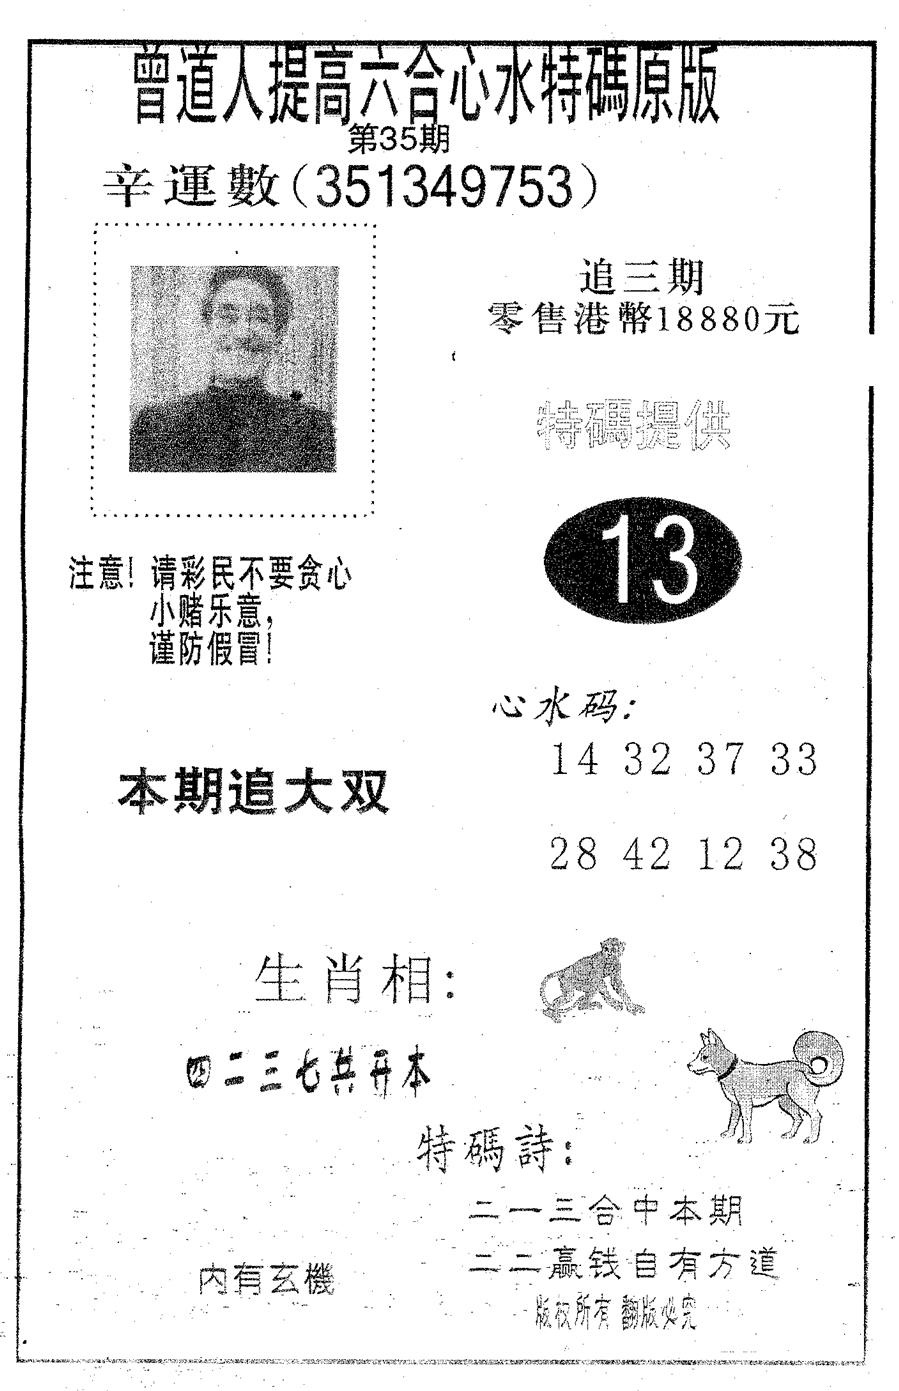 曾道人提高六合心水特碼原版
第35期
辛運數(351349753)
追三期
零售港幣18880元
特碼提供
13
注意！请彩民不要贪心
小赌乐意，
谨防假冒！
心水码：
14 32 37 33
本期追大双
28 42 12 38
生肖相：
四二三七共开本
特碼詩：
二一三合中本期
二二赢钱自有方道
内有玄機
版权所有 翻版必究